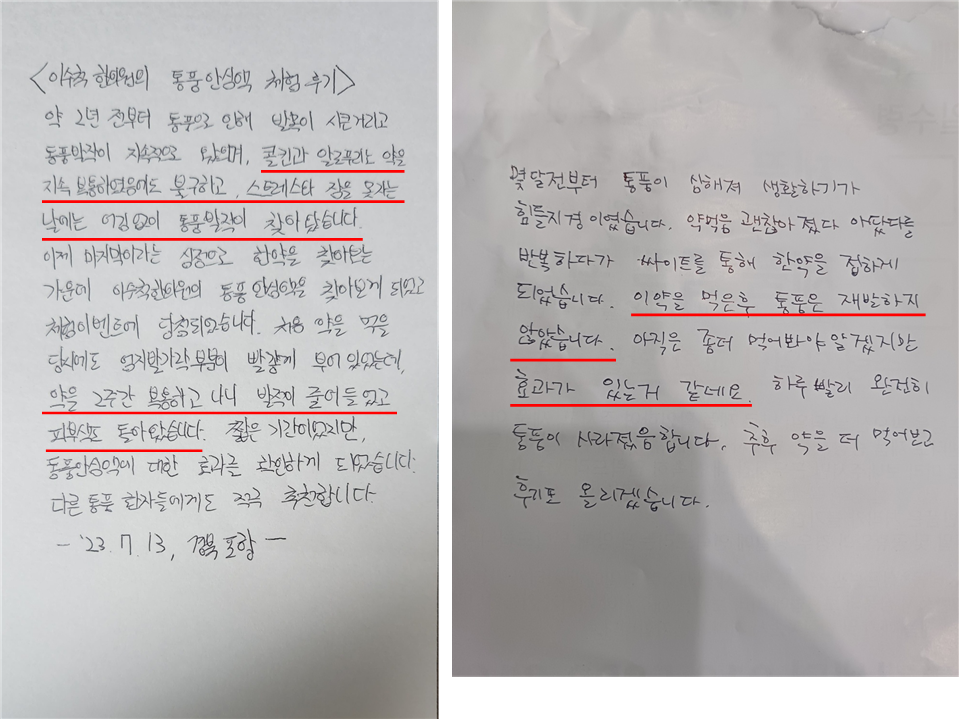 <이수학 한의원의 통풍안심액 체험 후기>
약 2년 전부터 통풍으로 인해 발목이 시큰거리고
통풍발작이 지속적으로 있으며, 콜킨과 알로푸리노 약을
지속 복용하였음에도 불구하고, 스트레스나 잠을 못자는
날에는 어김없이 통풍발작이 찾아 왔습니다.
이제 마지막이라는 심정으로 한약을 찾아보는
가운데 이수학한의원의 통풍안심액을 찾아보게 되었고
체험이벤트에 당첨되었습니다. 처음 약을 먹을
당시에도 엄지발가락부분이 빨갛게 부어있었는데,
약을 2주간 복용하고 나니 발작이 줄어들었고
피부색도 돌아왔습니다. 짧은 기간이었지만,
통풍안심액에 대한 효과를 확인하게 되었습니다.
다른 통풍 환자들에게도 적극 추천합니다.
- '23. 7. 13, 경북 포항 -
몇달전부터 통풍이 심해져 생활하기가
힘들지경 이였습니다. 약먹음 괜찮아 졌다 아팠다를
반복하다가 싸이트를 통해 한약을 접하게
되었습니다. 이약을 먹은후 통풍은 재발하지
않았습니다. 아직은 좀더 먹어봐야 알겠지만
효과가 있는거 같네요. 하루 빨리 완전히
통풍이 사라졌음합니다. 추후 약을 더 먹어보고
후기도 올리겠습니다.